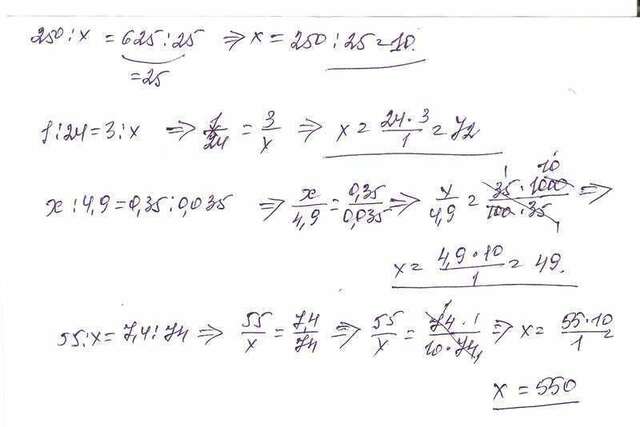 250 : x = 625 : 25 ⇒ x = 250 : 25 = 10.
= 25
1 : 24 = 3 : x ⇒ 1/24 = 3/x ⇒ x = 24·3/1 = 72
x : 4,9 = 0,35 : 0,035 ⇒ x/4,9 = 0,35/0,035 ⇒ x/4,9 = 35·1000/100·35 ⇒
x = 4,9·10/1 = 49.
55 : x = 7,4 : 74 ⇒ 55/x = 7,4/74 ⇒ 55/x = 74·1/10·74 ⇒ x = 55·10/1 =
x = 550